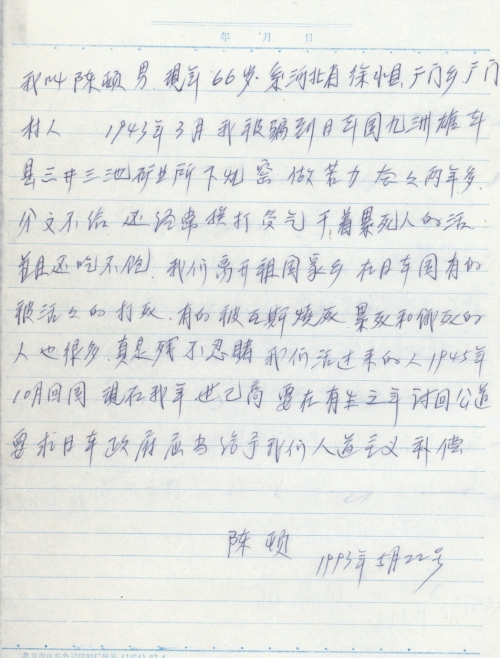 年 月 日
我叫陈顿 男 现年66岁.系河北省徐水县,广门乡广门
村人 1943年3月我被骗到日本国九洲雄本
县三井三池矿业所下地窑 做苦力长久两年多.
分文不给 还经常挨打受气 干着累死人的活
并且还吃不饱.我们离开祖国家乡 在日本国有的
被活久的打死.有的被瓦斯烧死 累死和饿死的
人也很多.真是残不忍睹 我们活过来的人1945年
10月回国 现在我年世已高 要在有生之年讨回公道
要求日本政府应当给予我们人道主义补偿
陈顿
1993年5月22号